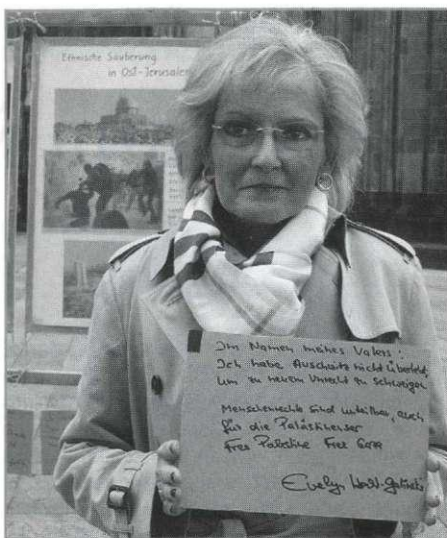 Ethnische Säuberung
in Ost-Jerusalem
Im Namen meines Vaters:
Ich habe Auschwitz nicht überlebt,
um zu neuem Unrecht zu schweigen
Menschenrechte sind unteilbar, auch
für die Palästinenser
Free Palestine Free Gaza
Evelyn Hecht-Galinski